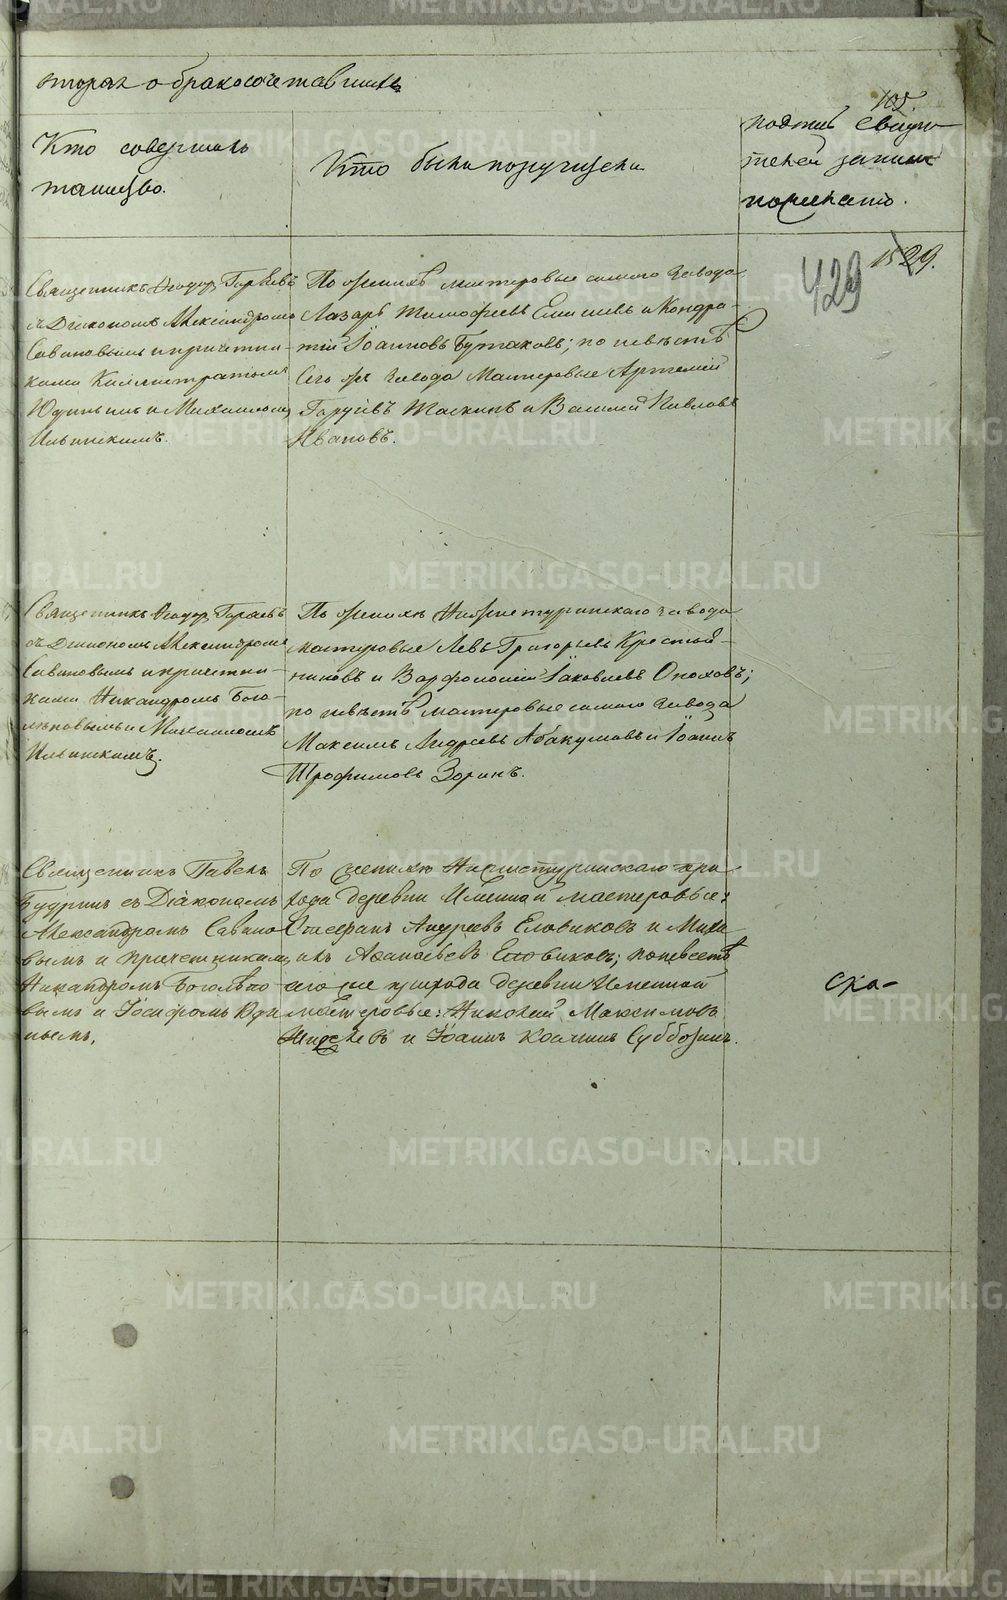 вторая о бракосочетавшихся
105.
Кто совершалъ
таинство.
Кто были поручители
подпись свидѣ-
телей записи
по желанію.
429
1529.
Священникъ Ѳеодоръ
съ Діакономъ Александромъ
Савиновымъ и причетни-
ками Каллистратомъ
Юдинымъ и Михаиломъ
Ильинскимъ.
По женихѣ мастеровые самаго завода
Лазарь Тимофеевъ и Кондра-
тій Іоанновъ Бутаковъ; по невѣстѣ
сего же завода Мастеровые Артемій
Таскинъ и Василій Павловъ
Ивановъ.
Священникъ Ѳеодоръ
съ Діакономъ Александромъ
Савиновымъ и причетни-
ками Никандромъ Бого-
лѣповымъ и Михаиломъ
Ильинскимъ.
По женихѣ Нижнетуринскаго завода
мастеровые Левъ Григорьевъ
и Варфоломей Іаковлевъ
по невѣстѣ мастеровые самаго завода
Максимъ Андреевъ Абакумовъ и Іоаннъ
Трофимовъ Зоринъ.
Священникъ Павелъ
Будринъ съ Діакономъ
Александромъ Савино-
вымъ и причетниками
Никандромъ Боголѣпо-
вымъ и Іосифомъ Юди-
нымъ.
По женихѣ Нижнетуринскаго при-
хода деревни Именной мастеровые:
Стефанъ Андреевъ Еловиковъ и Миха-
илъ Афанасьевъ Еловиковъ; по невѣстѣ
сего же прихода деревни Именной
мастеровые: Николай Максимовъ
и Іоаннъ Субботинъ.
Ска-
METRIKI.GASO-URAL.RU